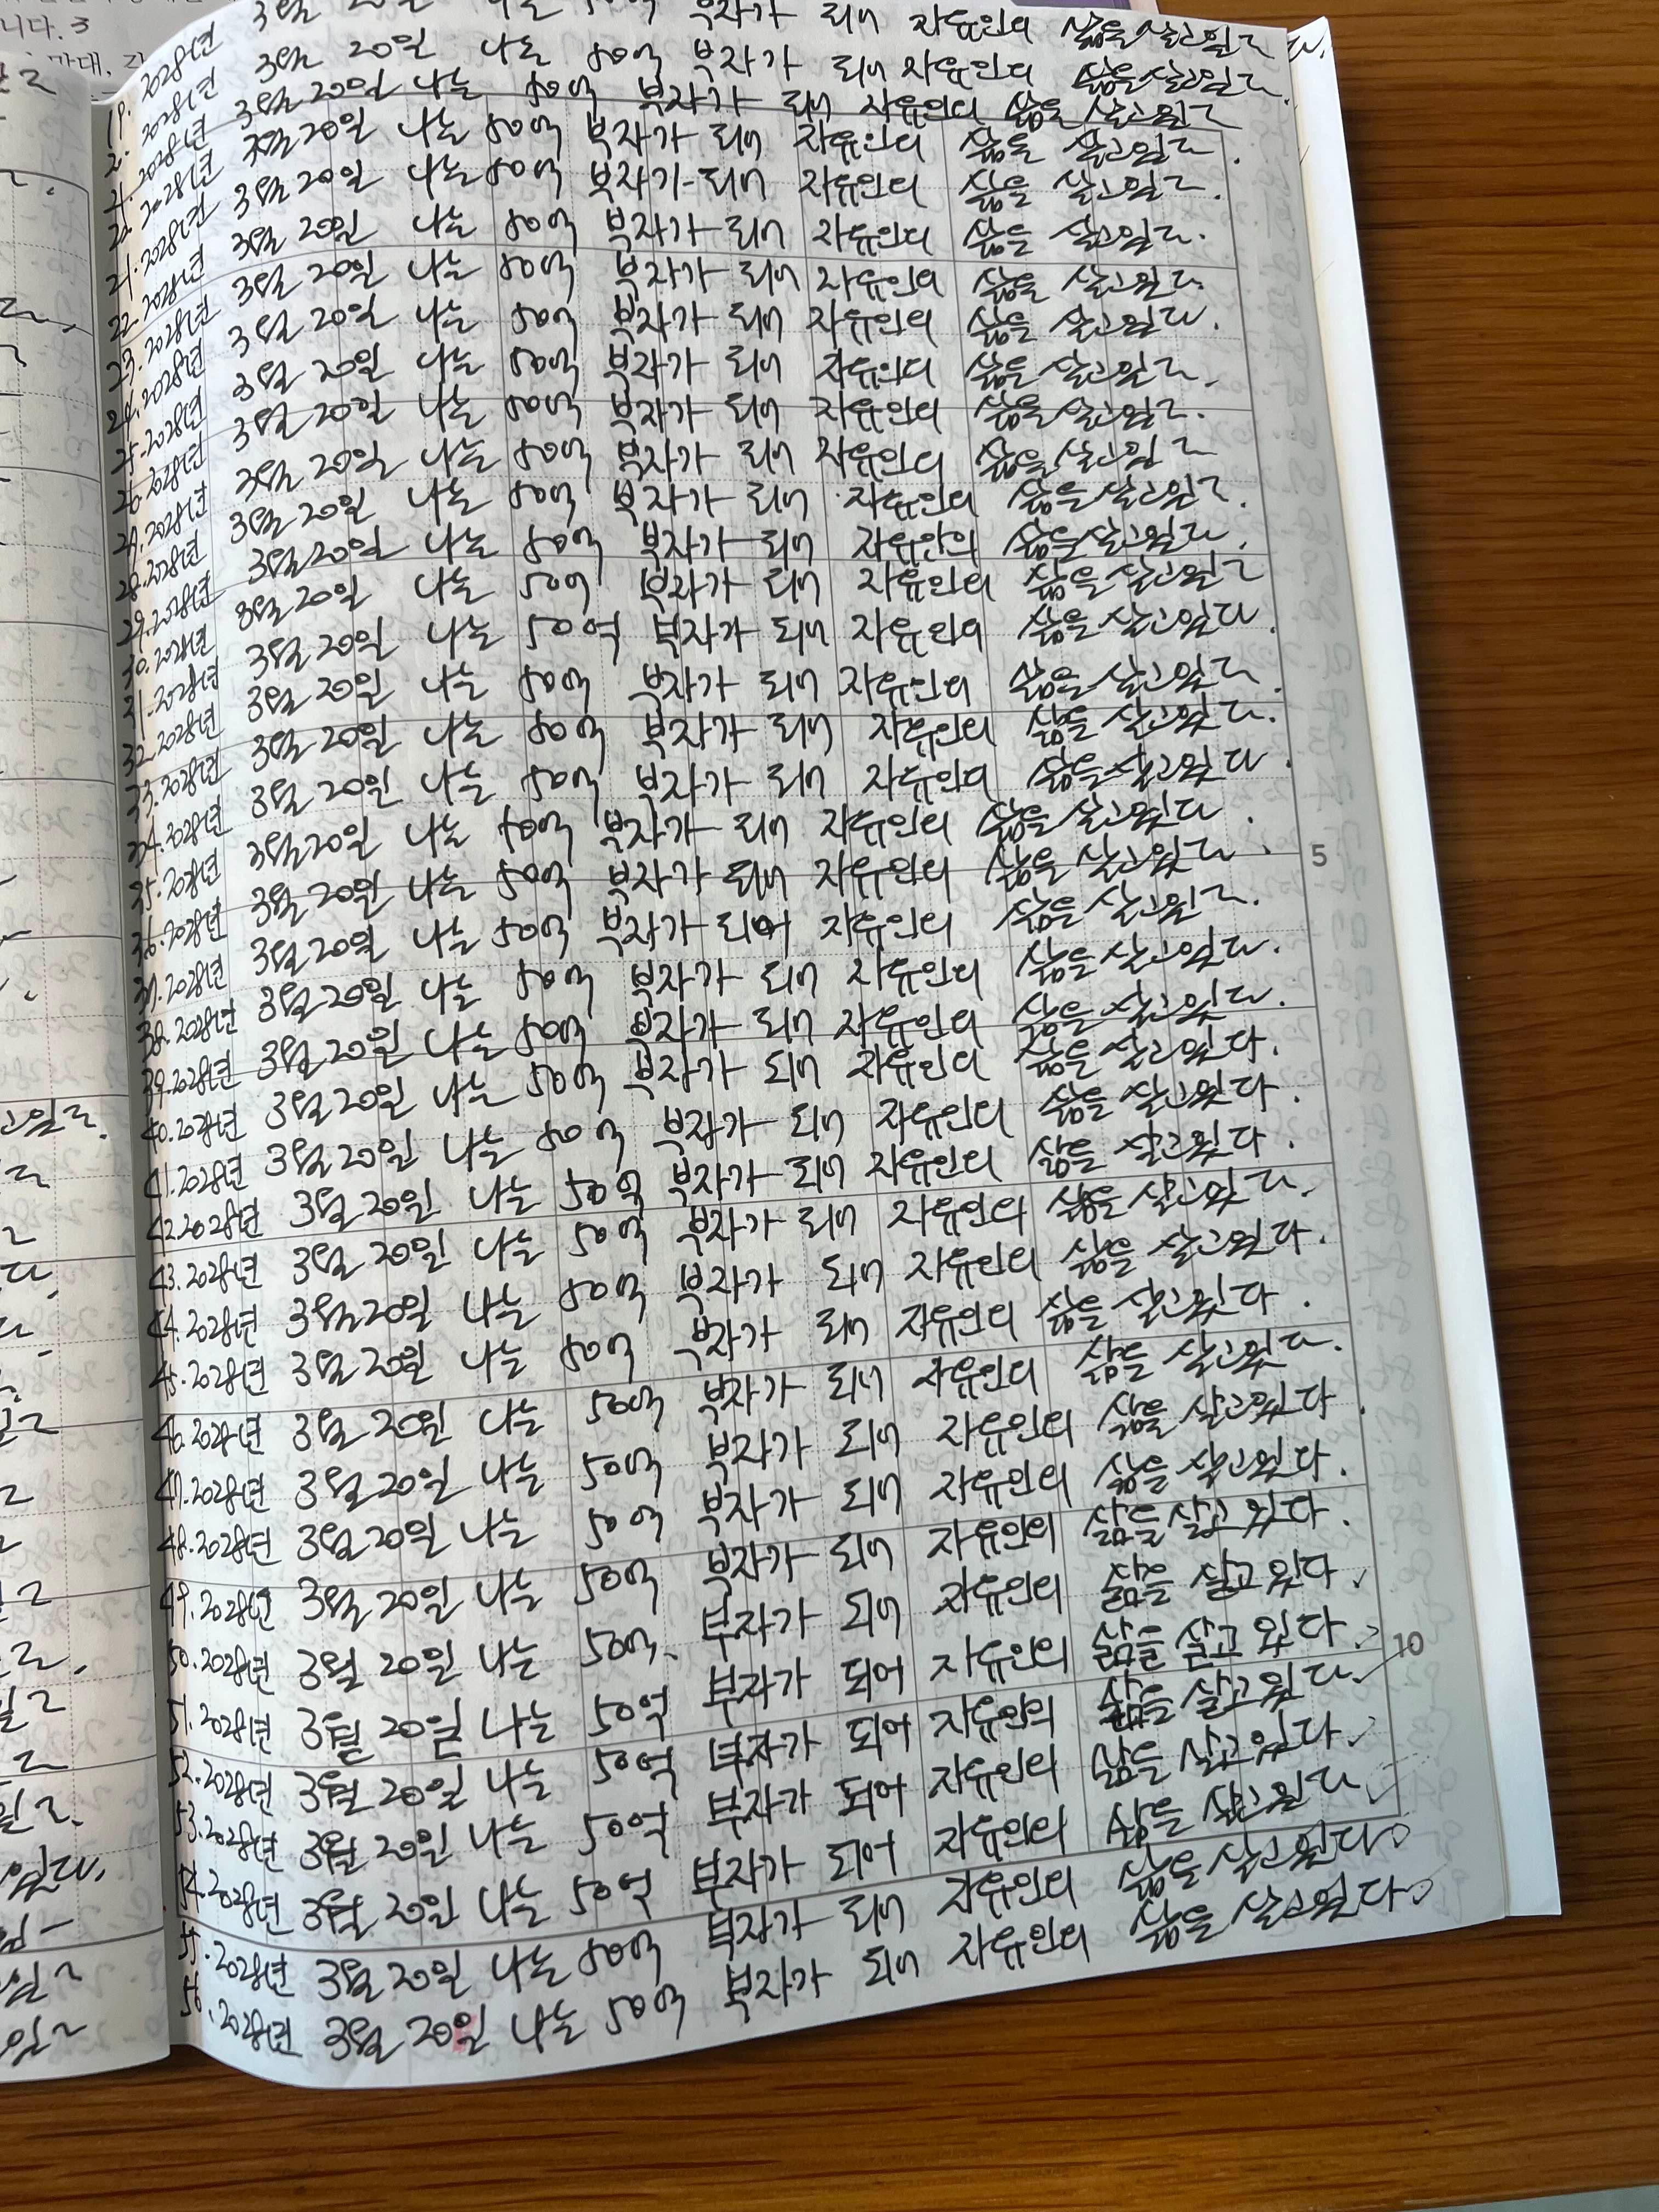 니다. 3
19. 2028년 3월 20일 나는 50억 부자가 되어 자유인의 삶을 살고있다.
2. 2028년 3월 20일 나는 50억 부자가 되어 자유인의 삶을 살고있다.
21. 2028년 3월 20일 나는 50억 부자가 되어 자유인의 삶을 살고있다
22. 2028년 3월 20일 나는 50억 부자가 되어 자유인의 삶을 살고있다.
21. 2028년 3월 20일 나는 50억 부자가 되어 자유인의 삶을 살고있다.
22. 2028년 3월 20일 나는 50억 부자가 되어 자유인의 삶을 살고있다.
23. 2028년 3월 20일 나는 50억 부자가 되어 자유인의 삶을 살고있다.
24. 2028년 3월 20일 나는 50억 부자가 되어 자유인의 삶을 살고있다.
25. 2028년 3월 20일 나는 50억 부자가 되어 자유인의 삶을 살고있다.
26. 2028년 3월 20일 나는 50억 부자가 되어 자유인의 삶을 살고있다.
27. 2028년 3월 20일 나는 50억 부자가 되어 자유인의 삶을 살고있다
28. 2028년 3월 20일 나는 50억 부자가 되어 자유인의 삶을 살고있다.
29. 2028년 3월 20일 나는 50억 부자가 되어 자유인의 삶을 살고있다.
30. 2028년 3월 20일 나는 50억 부자가 되어 자유인의 삶을 살고있다
31. 2028년 3월 20일 나는 50억 부자가 되어 자유인의 삶을 살고있다.
32. 2028년 3월 20일 나는 50억 부자가 되어 자유인의 삶을 살고있다.
33. 2028년 3월 20일 나는 50억 부자가 되어 자유인의 삶을 살고있다.
34. 2028년 3월 20일 나는 50억 부자가 되어 자유인의 삶을 살고있다.
35. 2028년 3월 20일 나는 50억 부자가 되어 자유인의 삶을 살고있다.
36. 2028년 3월 20일 나는 50억 부자가 되어 자유인의 삶을 살고있다. 5
37. 2028년 3월 20일 나는 50억 부자가 되어 자유인의 삶을 살고있다.
38. 2028년 3월 20일 나는 50억 부자가 되어 자유인의 삶을 살고있다.
39. 2028년 3월 20일 나는 50억 부자가 되어 자유인의 삶을 살고있다.
40. 2028년 3월 20일 나는 50억 부자가 되어 자유인의 삶을 살고있다.
41. 2028년 3월 20일 나는 50억 부자가 되어 자유인의 삶을 살고있다.
42. 2028년 3월 20일 나는 50억 부자가 되어 자유인의 삶을 살고있다.
43. 2028년 3월 20일 나는 50억 부자가 되어 자유인의 삶을 살고있다.
44. 2028년 3월 20일 나는 50억 부자가 되어 자유인의 삶을 살고있다.
45. 2028년 3월 20일 나는 50억 부자가 되어 자유인의 삶을 살고있다.
46. 2028년 3월 20일 나는 50억 부자가 되어 자유인의 삶을 살고있다.
47. 2028년 3월 20일 나는 50억 부자가 되어 자유인의 삶을 살고있다.
48. 2028년 3월 20일 나는 50억 부자가 되어 자유인의 삶을 살고있다.
49. 2028년 3월 20일 나는 50억 부자가 되어 자유인의 삶을 살고있다.
50. 2028년 3월 20일 나는 50억 부자가 되어 자유인의 삶을 살고있다.
51. 2028년 3월 20일 나는 50억 부자가 되어 자유인의 삶을 살고 있다. 10
52. 2028년 3월 20일 나는 50억 부자가 되어 자유인의 삶을 살고있다.
53. 2028년 3월 20일 나는 50억 부자가 되어 자유인의 삶을 살고있다.
54. 2028년 3월 20일 나는 50억 부자가 되어 자유인의 삶을 살고있다.
55. 2028년 3월 20일 나는 50억 부자가 되어 자유인의 삶을 살고있다.
56. 2028년 3월 20일 나는 50억 부자가 되어 자유인의 삶을 살고있다.